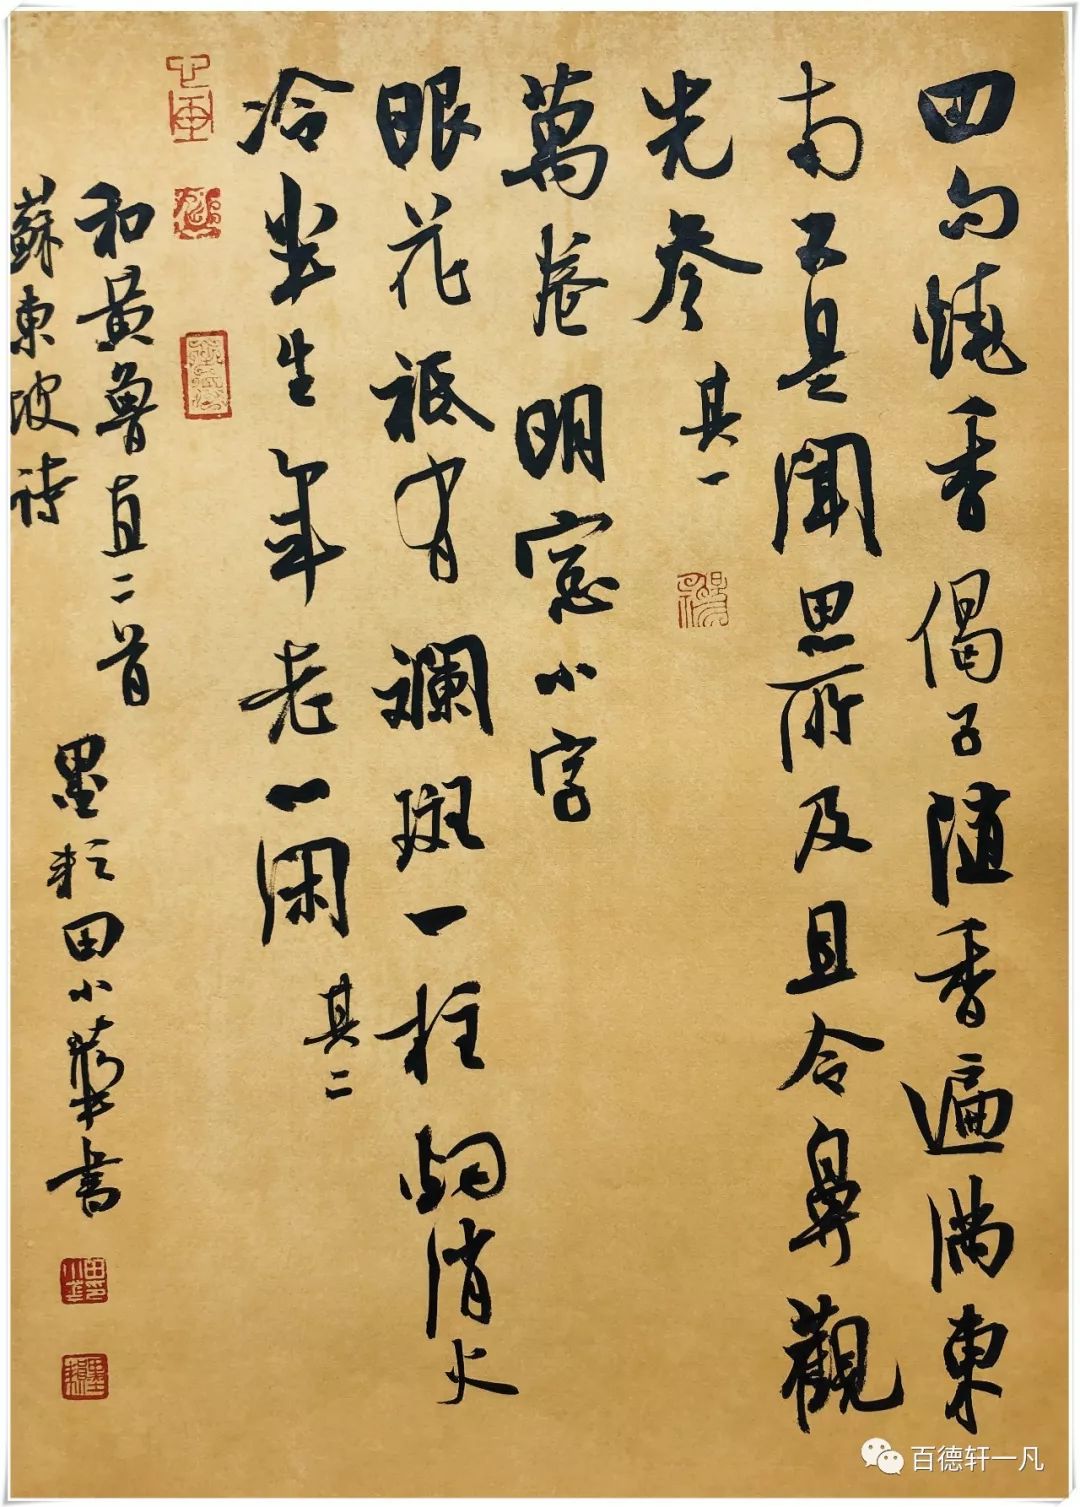 四句燒香偈子随香遍满東
南不是聞思所及且令鼻觀
先参 其一
萬卷明窓小字
眼花祗有斓斑一柱烟消火
冷半生年老一闲 其二
和黄魯直二首
蘇東坡诗
墨耘田小華书
百德轩一凡